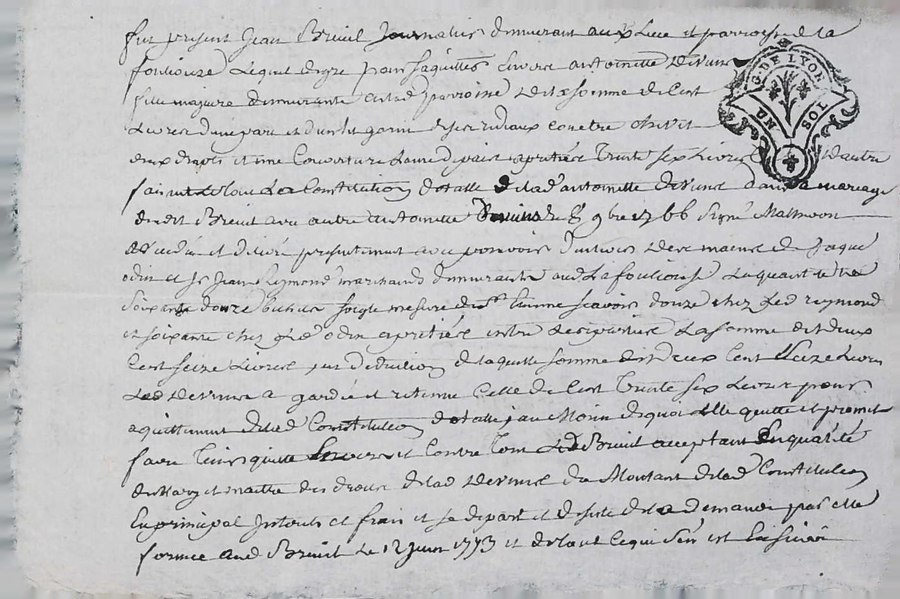 fut present Jean Breuil Journalier demeurant aux Lieu et parroisse de la
fouliouze Lequel de gre pour saquitter Envers antoinette devune
fille majeure demeurante audit parroisse de la somme de Cent
Livres dune part et dun lit garni de ses rideaux
deux draps et une Couverture Laine de pais apretiés Trente six Livres dautre
faisant Le tout La Constitution dotalle de lad antoinette devune dans la mariage
dudit Breuil avec autre antoinette le 8 9bre 1766 signé
a Vendu et delivré presentement avec pouvoir des mains de Jaque
odin et Sr Jean Reymond marchand demeurants aud La fouliouse La quantité de
soixante douze bichets soigle mesure de St Etienne scavoir douze chez Led reymond
et soixante chez Led odin apretiés entre Les parties La somme de deux
Cent seize Livres sur deduction de laquelle somme de deux Cent seize Livres
Lad devune a gardé et retenue Celle de Cent Trente six Livres pour
aquittement de lad Constitution dotalle au Moien de quoi Elle quitte et promet
faire tenir quitte Envers et Contre Tous Led Breuil acceptant En qualité
de Mary et maitre des droits de lad devune du Montant de lad Constitution
En principal Interets et frais et se depart et desiste de la demande par elle
formée aud Breuil Le 12 Juin 1773 et de tout ce qui sen est Ensuivi
G. DE LYON
UN SOL